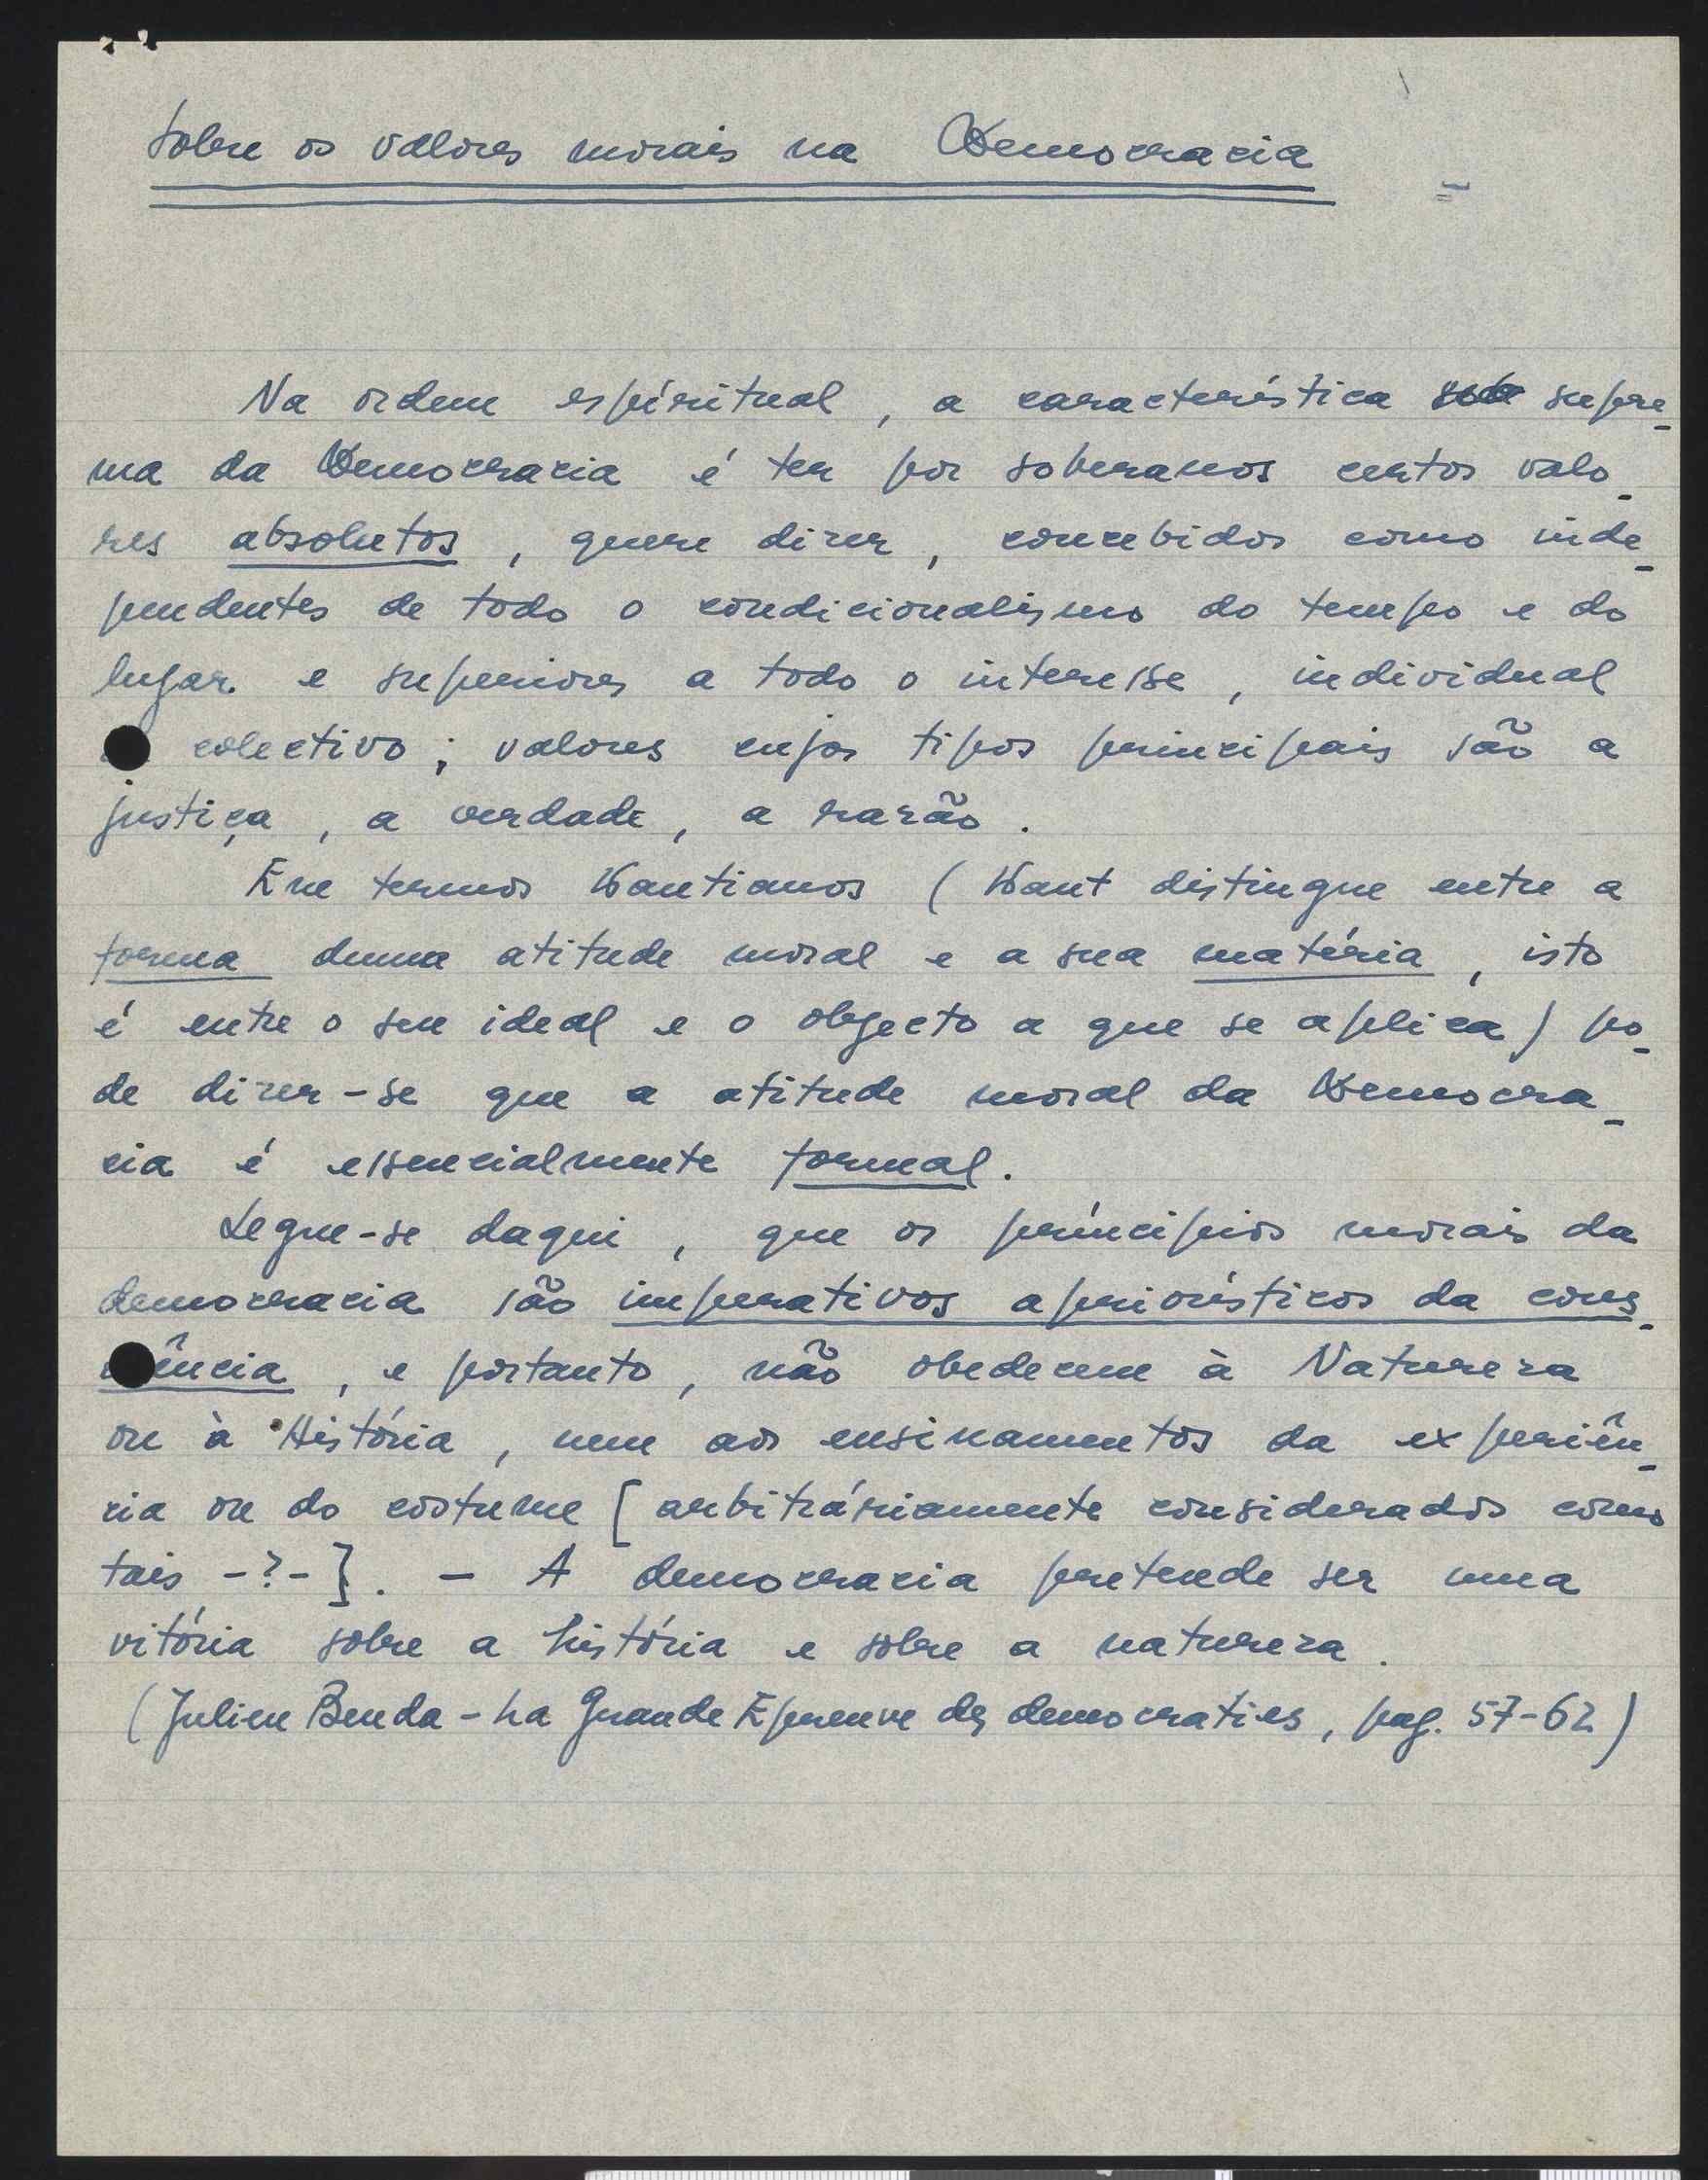 Sobre os valores morais na Democracia
Na ordem espíritual, a característica supre-
ma da Democracia é ter por soberanos certos valo-
res absolutos, quere dizer, concebidos como inde-
pendentes de todo o condicionalismo do tempo e do
lugar e superiores a todo o interesse, individual
colectivo; valores cujos tipos principais são a
justiça, a verdade, a razão.
Em termos Kantianos (Kant distingue entre a
forma duma atitude moral e a sua matéria, isto
é entre o seu ideal e o objecto a que se aplica) po-
de dizer-se que a atitude moral da Democra-
cia é essencialmente formal.
Segue-se daqui, que os príncipios morais da
democracia são imperativos apriorísticos da cons-
ciência, e portanto, não obedecem à Natureza
ou à História, nem aos ensinamentos da experiên-
cia ou do costume [arbitráriamente considerados como
tais -?-]. - A democracia pretende ser uma
vitória sobre a história e sobre a natureza.
(Julien Benda - La Grande Epreuve des democraties, pag. 57-62)